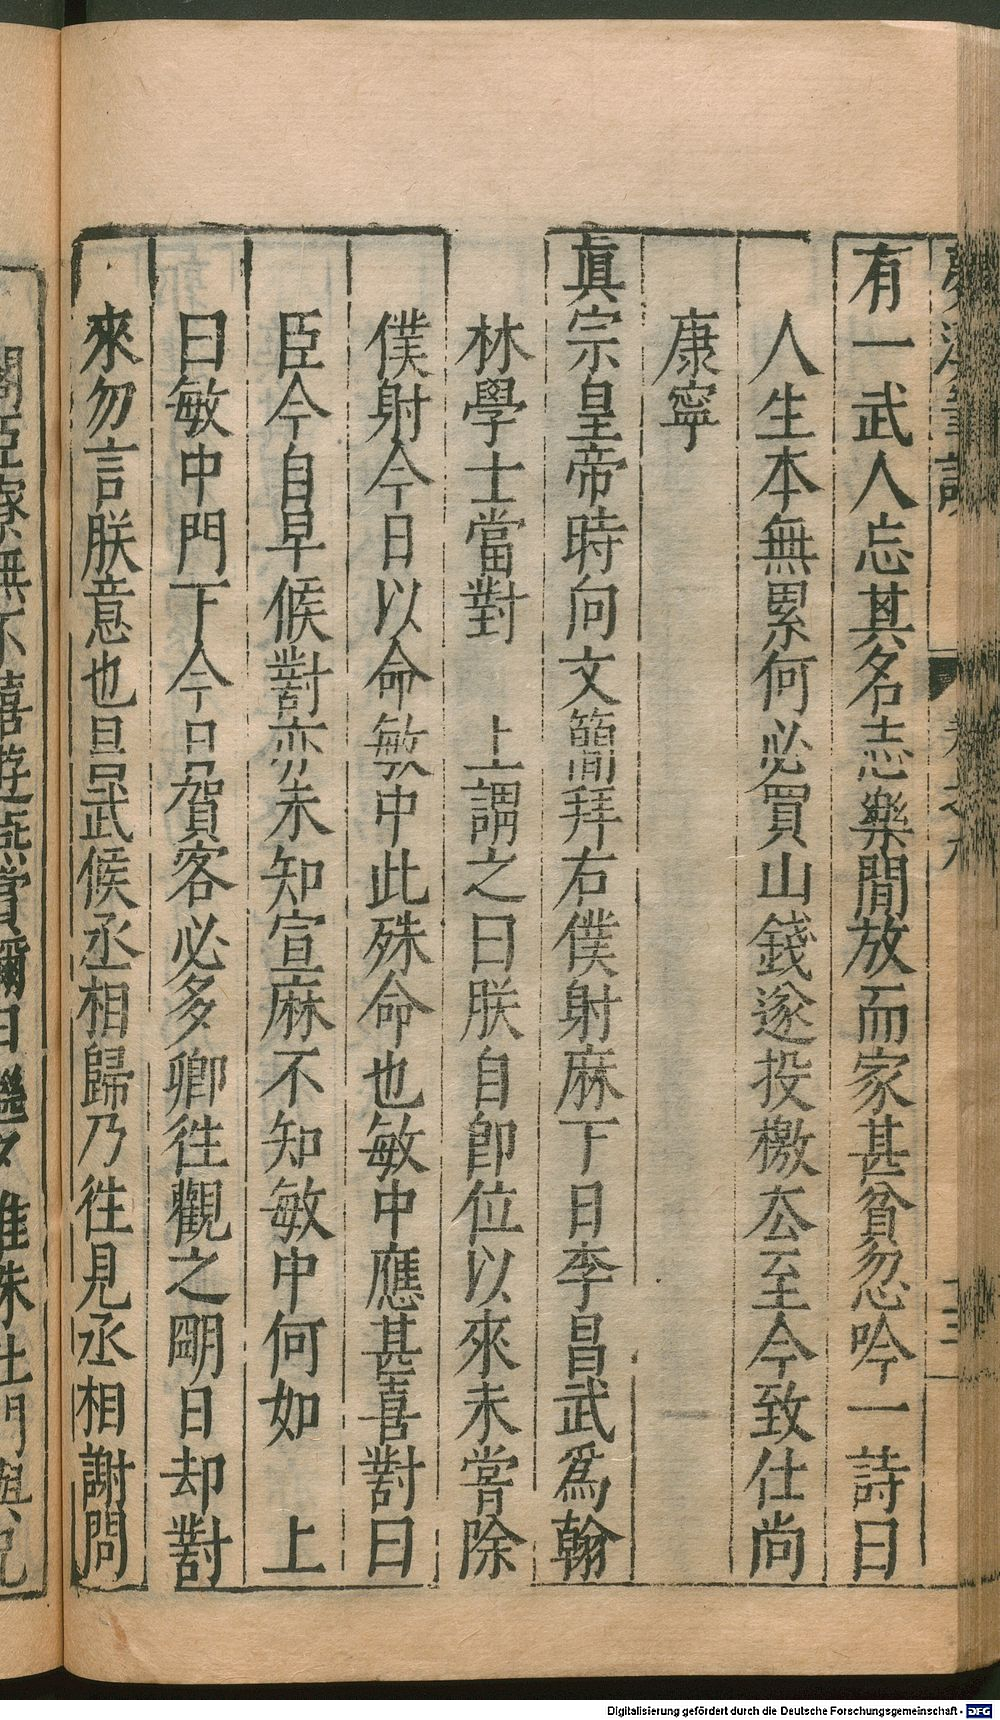 夢溪筆談 卷之九 三
有一武人忘其名志樂閒放而家甚貧忽吟一詩曰
人生本無累何必買山錢遂投檄去至今致仕尚
康寧
眞宗皇帝時向文簡拜右僕射麻下日李昌武爲翰
林學士當對 上謂之曰朕自卽位以來未嘗除
僕射今日以命敏中此殊命也敏中應甚喜對曰
臣今自早候對亦未知宣麻不知敏中何如 上
曰敏中門下今日賀客必多卿往觀之明日却對
來勿言朕意也昌武候丞相歸乃往見丞相謝問
無不
遊燕賞彌日繼夕
杜門與兄
Digitalisierung gefördert durch die Deutsche Forschungsgemeinschaft - DFG